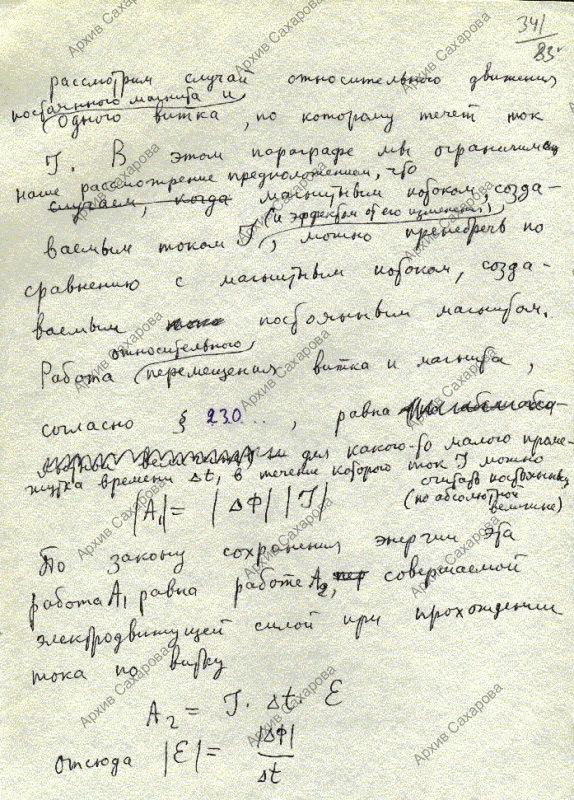 341/83
рассмотрим случай относительного движения
постоянного магнита и
одного витка, по которому течет ток
J. В этом параграфе мы ограничим
наше рассмотрение предположением, что
случаем, когда магнитным потоком, созда-
(и эффектом от его изменения)
ваемым током J, можно пренебречь по
сравнению с магнитным потоком, созда-
ваемым постоянным магнитом.
относительного
Работа перемещения витка и магнита,
согласно § 230..., равна
для какого-то малого проме-
жутка времени Δt, в течение которого ток J можно
считать постоянным
(по абсолютной
величине)
|A₁| = |ΔФ| |J|
По закону сохранения энергии эта
работа A₁ равна работе A₂, совершаемой
электродвижущей силой при прохождении
тока по витку
A₂ = J · Δt · Ɛ
отсюда |Ɛ| = |ΔФ|/Δt
Архив Сахарова